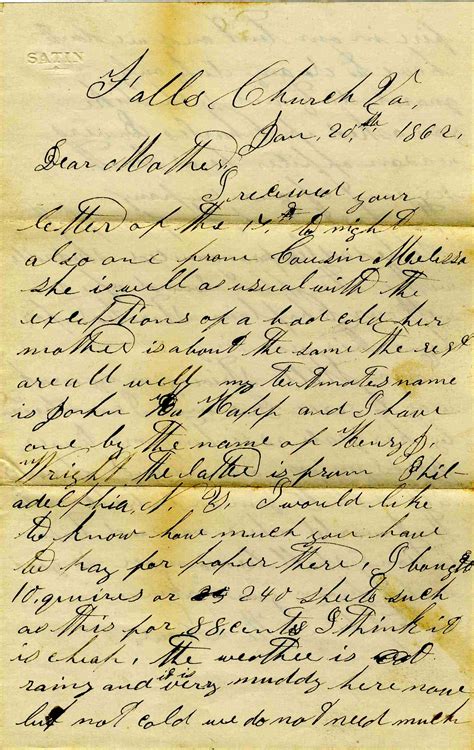 SATIN
Falls Church Va,
Jan, 20,th 1862,
Dear Mother,
I received your
letter of the 14th to night
also one from Cousin Melissa
she is well as usual with the
exceptions of a bad cold her
mother is about the same the rest
are all well my tentmates name
is John Kapp and I have
one by the name of Henry J.
Wright the latte is from Phil-
adelphia, N. Y. I would like
to know how much you have
to pay for paper there, I bought
10, quires or 240 sheets such
as this for 88, cents I think it
is cheap, the weather is
rainy and it is very muddy here now
but not cold we do not need much